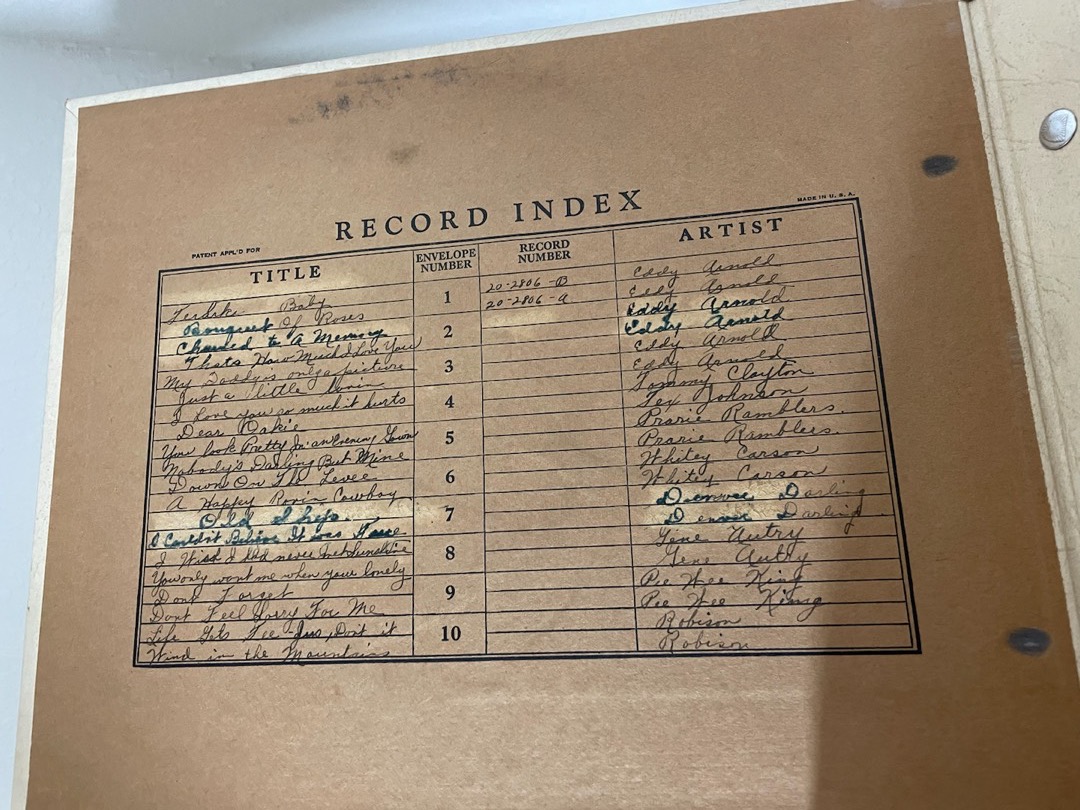 RECORD INDEX
PATENT APPL'D FOR
MADE IN U. S. A.
TITLE ENVELOPE NUMBER RECORD NUMBER ARTIST
Baby 1 20-2806-B Eddy Arnold
Bouquet Of Roses 20-2806-A Eddy Arnold
Chained to A Memory 2 Eddy Arnold
Thats How Much I Love You Eddy Arnold
My Daddy is only a picture 3 Eddy Arnold
Just a little Eddy Arnold
I Love you so much it hurts 4 Tommy Clayton
Dear Oakie Tex Johnson
You look Pretty In an Evening Gown 5 Prarie Ramblers.
Nobody's Darling But Mine Prarie Ramblers.
Down On The Levee 6 Whitey Carson
A Happy Rovin Cowboy Whitey Carson
Old Shep. 7 Denver Darling
I Could't Believe It was True Denver Darling
I Wish I Had never 8 Gene Autry
You only want me when your lonely Gene Autry
Dont Forget 9 Pee Wee King
Dont Feel Sorry For Me Pee Wee King
Life Gets Tee-Jus, Don't it 10 Robison
Wind in the Mountains Robison